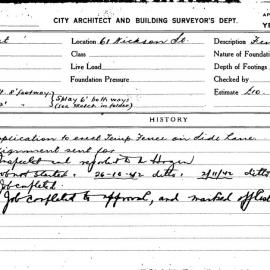 CITY ARCHITECT AND BUILDING SURVEYOR'S DEPT.
Location 61 Hickson St. Description
Class Nature of Foundation
Live Load Depth of Footings
Foundation Pressure Checked by
8' footway } Splay 6' both ways Estimate £10
(see sketch in folder)
HISTORY
Application to erect Temp. Fence on Side Lane
alignment sent for
Inspected and reported to
not started. 26-10-42 ditto. 2/11/42 ditto
Job completed.
Job completed to approval, and marked off list